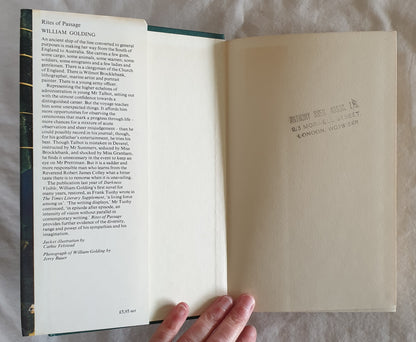 Rites of Passage
WILLIAM GOLDING
An ancient ship of the line converted to general
purposes is making her way from the South of
England to Australia. She carries a few guns,
some cargo, some animals, some warmen, some
soldiers, some emigrants and a few ladies and
gentlemen. There is a clergyman of the Church
of England. There is Wilmot Brocklebank,
lithographer, marine artist and portrait
painter. There is a young entry officer.
Representing the higher echelons of
administration is young Mr Talbot, setting out
with the utmost confidence towards a
distinguished career. But the voyage teaches
him some unexpected things. It affords him
more opportunities for observing the
ceremonies that mark a progress through life –
more chances for a mixture of acute
observation and sheer misjudgement – than he
could possibly record in his journal, though,
for his godfather's edification, he tries his
best. Though Talbot is mistaken in Deverel,
instructed by Mr Summers, seduced by Miss
Brocklebank, and shocked by Miss Granham,
he finds it unnecessary in the event to keep an
eye on Mr Prettiman. But it is a sadder and
more responsible man who learns from the
Reverend Robert James Colley what a bitter
taste there is to remorse when it is unavailing.
The publication last year of Darkness
Visible, William Golding's first novel for
many years, restored, as Frank Tuohy wrote in
The Times Literary Supplement, 'a living force
among us'. 'The writing displays,' Mr Tuohy
continued, 'in episode after episode, an
intensity of vision without parallel in
contemporary writing.' Rites of Passage
provides further evidence of the diversity,
range and power of his sympathies and his
imagination.
Jacket illustration by
Cathie Felstead
Photograph of William Golding by
Jerry Bauer
£5.95 net
STREET,
LONDON,